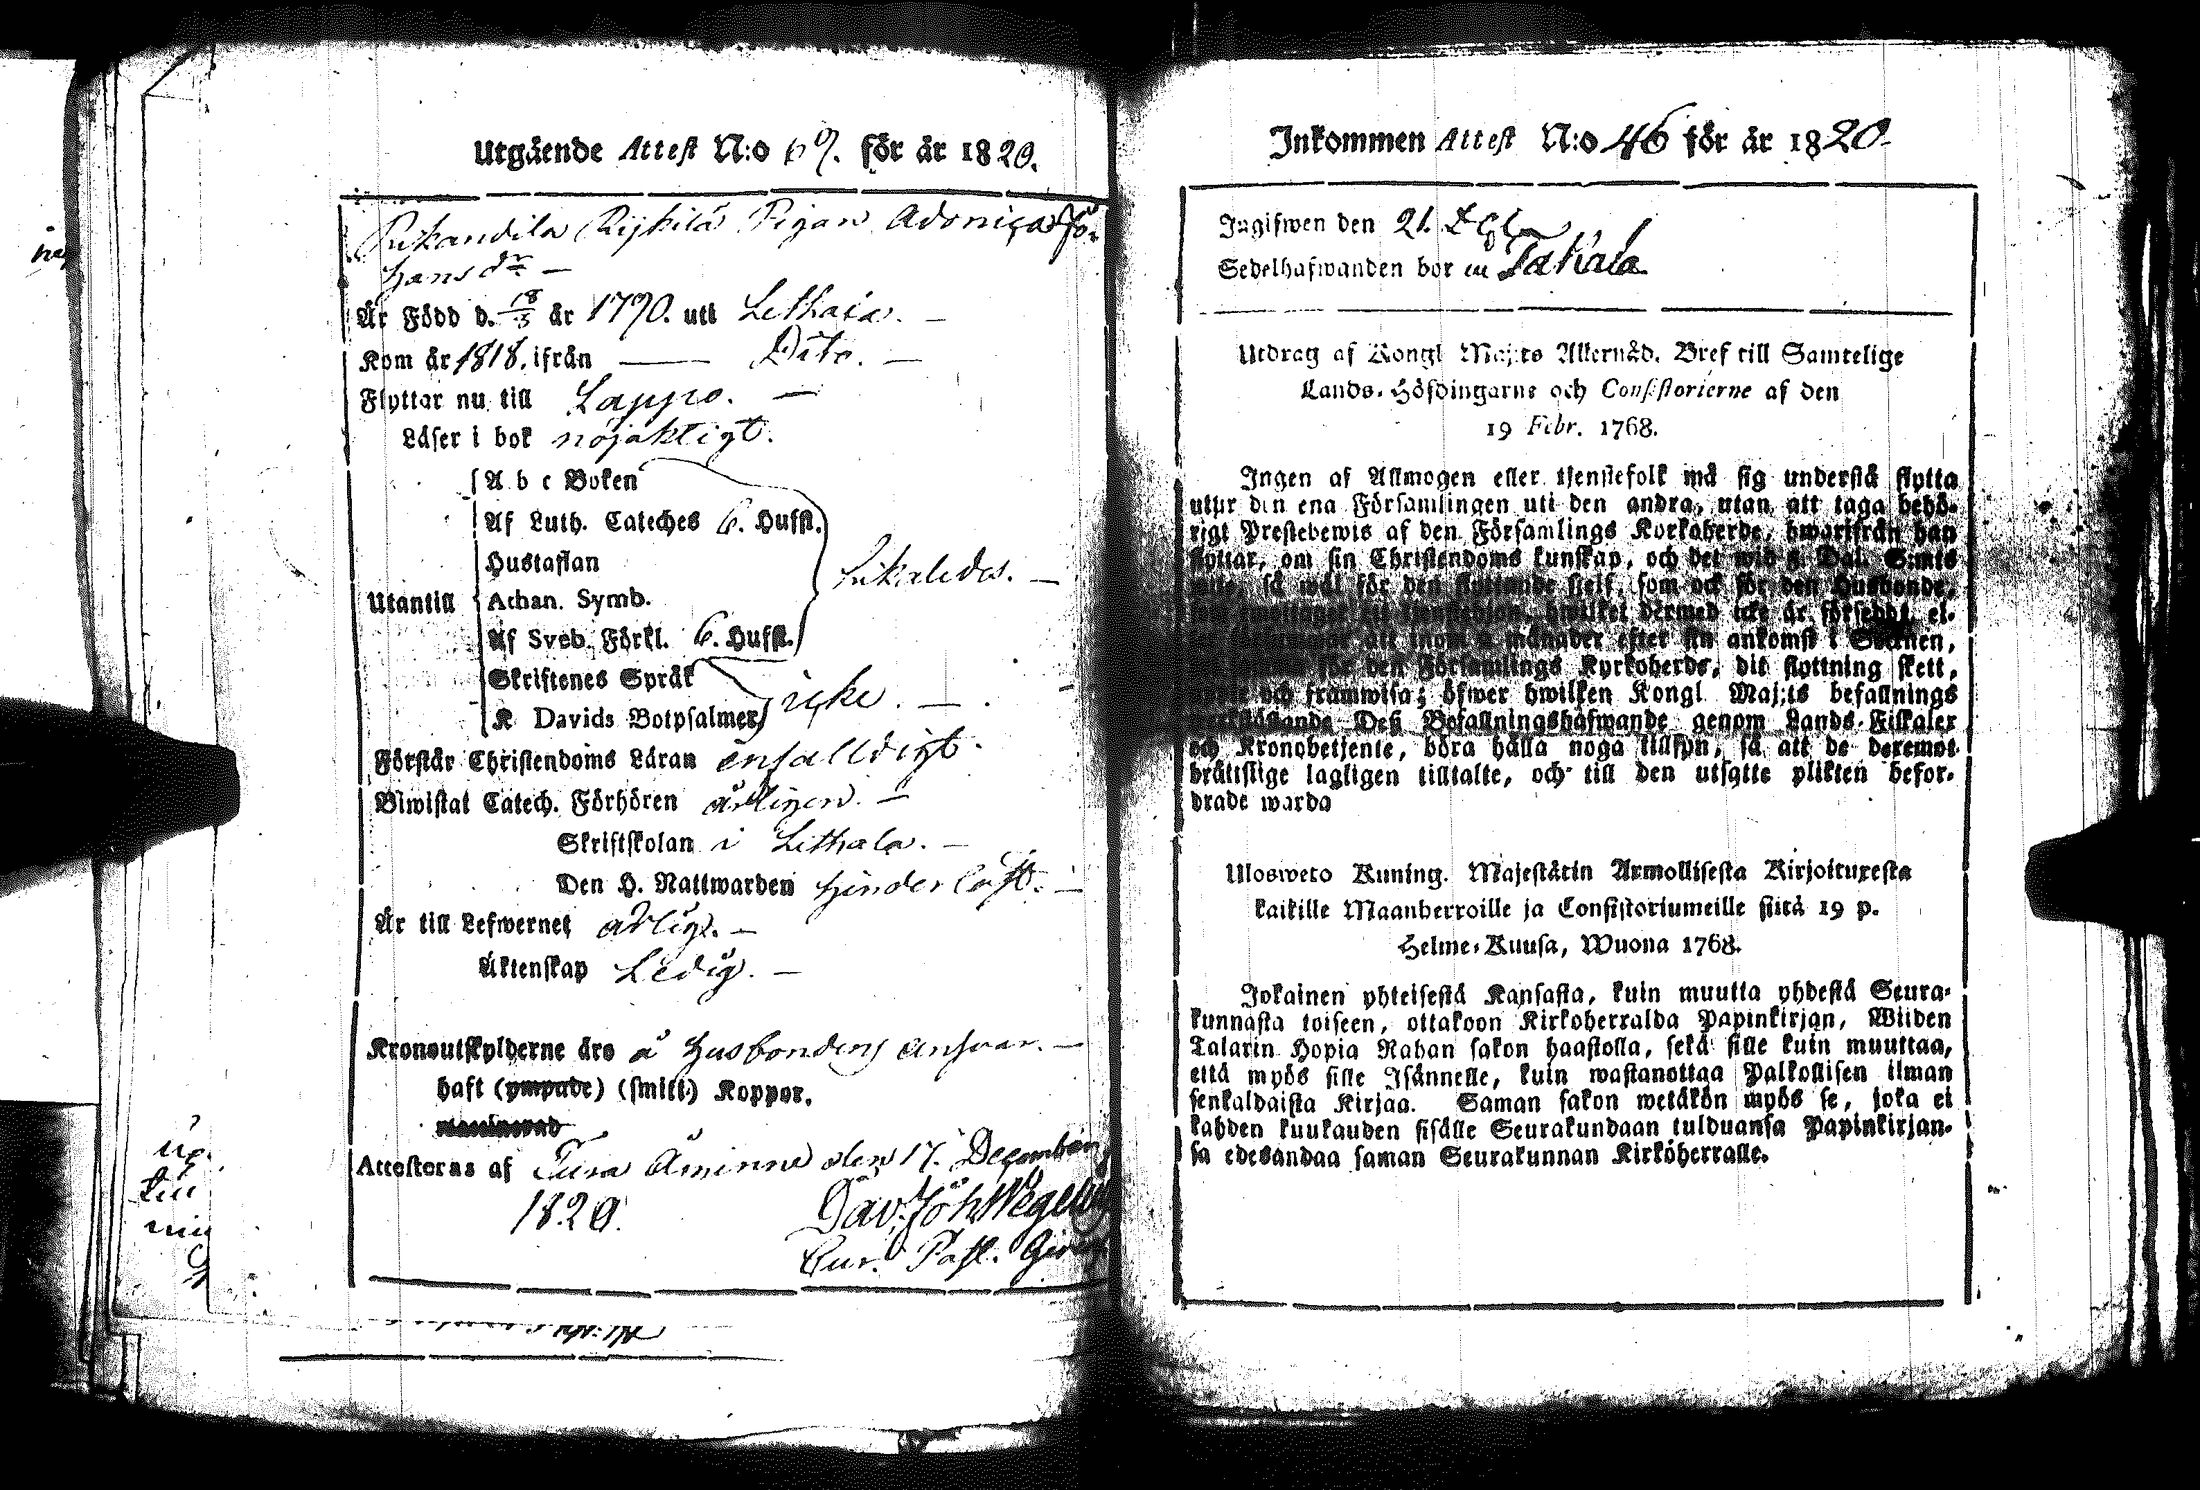 Utgående Attest N:o 69. för år 1820.
Rijhilä Pigan
hans dr —
Är Född d. 18/3 år 1790. uti Lethala. —
Kom år 1818. ifrån — Dito. —
Flyttar nu till Lappo. —
Läser i bok nöjaktigt.
A b c Boken
Af Luth. Cateches 6. Hufst.
Hustaflan
Utantill
Athan. Symb.
likaledes. —
Af Sveb. Förkl. 6. Hufst.
Skriftenes Språk
icke. —
K Davids Botpsalmer
Förstår Christendoms Läran enfalldigt.
Biwistat Catech. Förhören årligen. —
Skriftskolan i Lethala. —
Den H. Nattwarden —
Är till Lefwernet ärlig. —
Äktenskap Ledig. —
Kronoutskylderne äro å Husbondens answar. —
haft (ympade) (smitt.) Koppor.
vaccinerad
Attesteras af Tusa Åminne den 17. December
1820.
Dav. Joh. Wegelius
Cur. Past.
Inkommen Attest N:o 46 för år 1820.
Ingifwen den 21.
Sedelhafwanden bor i
Utdrag af Kongl Maj:ts Allernåd. Bref till Samtelige
Lands-Höfdingarne och Consistorierne af den
19 Febr. 1768.
Ingen af Allmogen eller tjenstefolk må sig understå flytta
utur den ena Församlingen uti den andra, utan att taga behö-
rigt Prestebewis af den Församlings Kyrkoherde, hwarifrån han
flyttar, om sin Christendoms kunskap, och det wid 5 Dal. S:mts
wite, så wäl för den flyttande sjelf, som ock för den Husbonde,
hwilket dermed icke är försedd, el-
att inom 2 månader efter sin ankomst i Socknen,
för den Församlings Kyrkoherde, dit flyttning skett,
och framwisa; öfwer hwilken Kongl Maj:ts befallnings
werkställande Dess Befallningshafwande genom Lands-Fiskaler
och Kronobetjente, böra hålla noga tillsyn, så att de deremot
bråttslige lagligen tilltalte, och till den utsatte plikten befor-
drade warda
Ulosweto Kuning. Majestätin Armollisesta Kirjoituxesta
kaikille Maanherroille ja Consistoriumeille siitä 19 p.
Helme-Kuusa, Wuona 1768.
Jokainen yhteisestä Kansasta, kuin muutta yhdestä Seura-
kunnasta toiseen, ottakoon Kirkoherralda Papinkirjan, Wiiden
Talarin Hopia Rahan sakon haastolla, sekä sille kuin muuttaa,
että myös sille Isännelle, kuin wastanottaa Palkollisen ilman
senkaldaista Kirjaa. Saman sakon wetäkön myös se, joka ei
kahden kuukauden sisälle Seurakundaan tulduansa Papinkirjan-
sa edesandaa saman Seurakunnan Kirköherralle.